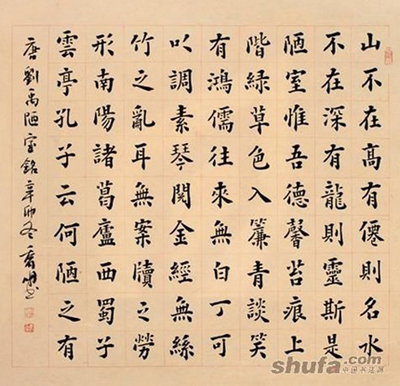 山不在高有僊則名水
不在深有龍則靈斯是
陋室惟吾德馨苔痕上
階綠草色入簾青談笑
有鴻儒往來無白丁可
以調素琴閱金經無絲
竹之亂耳無案牘之勞
形南陽諸葛廬西蜀子
雲亭孔子云何陋之有
唐劉禹陋室銘辛卯冬
shufa.com
中国书法网